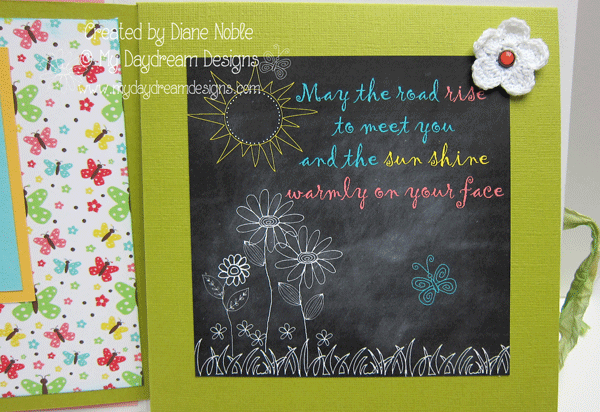 Created by Diane Noble
© My Daydream Designs
www.mydaydreamdesigns.com
May the road rise
to meet you
and the sun shine
warmly on your face